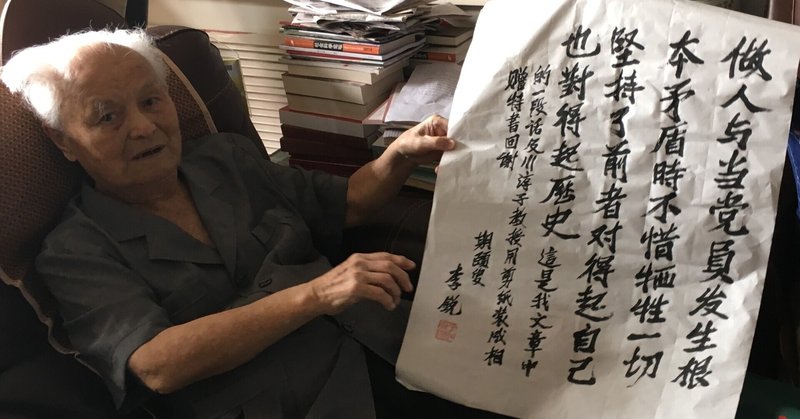 做人与当党員发生根
本矛盾時不惜牺牲一切
堅持了前者对得起自己
也對得起歷史 這是我文章中
的一段话及川淳子教授用剪纸装成相
赠特書回谢
期頤叟
李锐